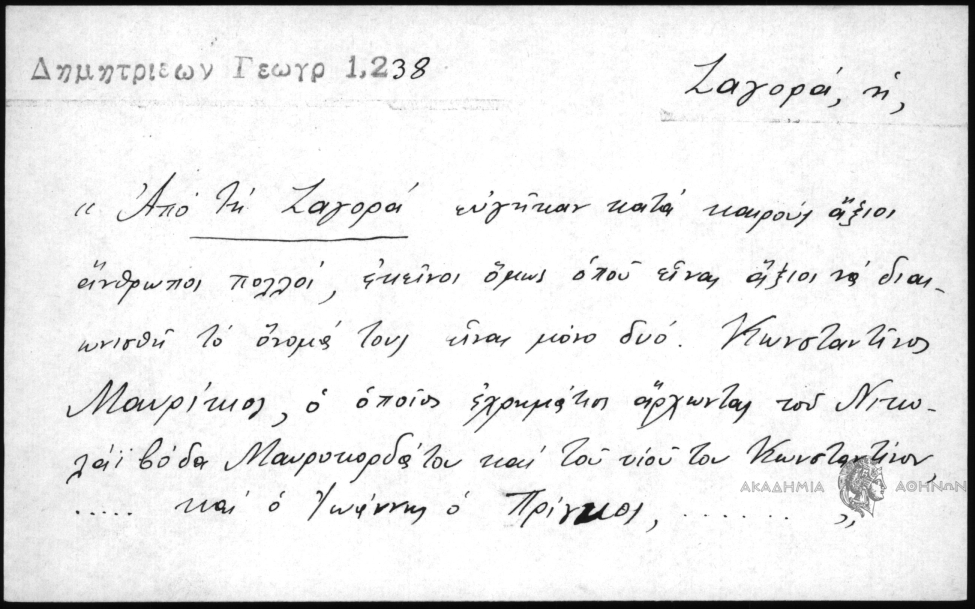 Δημητριεων Γεωγρ 1,238
Ζαγορά, ἡ,
« Ἀπό τή Ζαγορά εὐγῆκαν κατά καιρούς ἄξιοι
ἄνθρωποι πολλοί, ἐκεῖνοι ὅμως ὁποῦ εἶναι ἄξιοι νά διαι-
ωνισθῆ τό ὄνομά τους εἶναι μόνο δυό. Κωνσταντῖνος
Μαυρίκιος, ὁ ὁποῖος ἐχρημάτισε ἄρχωντας τοῦ Νικο-
λάϊ βόδα Μαυροκορδάτου καί τοῦ υἱοῦ του Κωνσταντίνου,
..... καί ὁ Ἰωάννης ὁ Πρίγκος, ....... »
ΑΚΑΔΗΜΙΑ ΑΘΗΝΩΝ